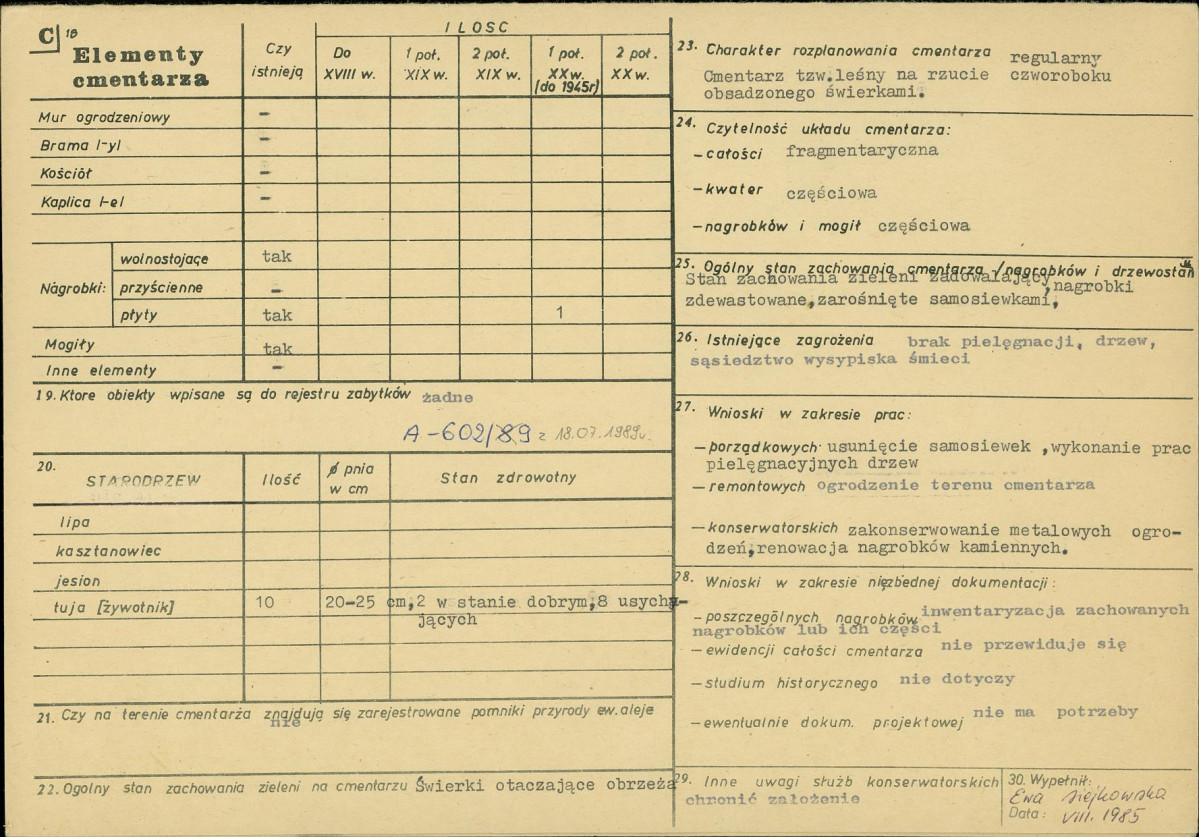 C 18
Elementy
cmentarza
Czy
istnieją
ILOSC
Do
XVIII w.
1 poł.
XIX w.
2 poł.
XIX w.
1 poł.
XX w.
(do 1945r)
2 poł.
XX w.
Mur ogrodzeniowy -
Brama I-yl -
Kościół -
Kaplica I-el -
Nagrobki:
wolnostojące tak
przyścienne -
płyty tak 1
Mogiły tak
Inne elementy -
19. Ktore obiekty wpisane są do rejestru zabytków żadne
A-602/89 z 18.07.1989r.
20. STARODRZEW
Ilość
ø pnia
w cm
Stan zdrowotny
lipa
kasztanowiec
jesion
tuja [żywotnik] 10 20-25 cm,2 w stanie dobrym,8 usychą-
jących
21. Czy na terenie cmentarza znajdują się zarejestrowane pomniki przyrody ew. aleje
nie
22. Ogolny stan zachowania zieleni na cmentarzu Świerki otaczające obrzeża
23. Charakter rozplanowania cmentarza regularny
Cmentarz tzw.leśny na rzucie czworoboku
obsadzonego świerkami.
24. Czytelność układu cmentarza:
-całości fragmentaryczna
-kwater częściowa
-nagrobków i mogił częściowa
25. Ogólny stan zachowania cmentarza /nagrobków i drzewostan
Stan zachowania zieleni zadowalający,nagrobki
zdewastowane,zarośnięte samosiewkami,
26. Istniejące zagrożenia brak pielęgnacji, drzew,
sąsiedztwo wysypiska śmieci
27. Wnioski w zakresie prac:
-porządkowych usunięcie samosiewek ,wykonanie prac
pielęgnacyjnych drzew
-remontowych ogrodzenie terenu cmentarza
-konserwatorskich zakonserwowanie metalowych ogro-
dzeń,renowacja nagrobków kamiennych.
28. Wnioski w zakresie niezbednej dokumentacji:
-poszczególnych nagrobków inwentaryzacja zachowanych
nagrobków lub ich części
-ewidencji całości cmentarza nie przewiduje się
-studium historycznego nie dotyczy
-ewentualnie dokum. projektowej nie ma potrzeby
29. Inne uwagi służb konserwatorskich
chronić założenie
30. Wypełnił:
Ewa Siejkowska
Data: VIII. 1985